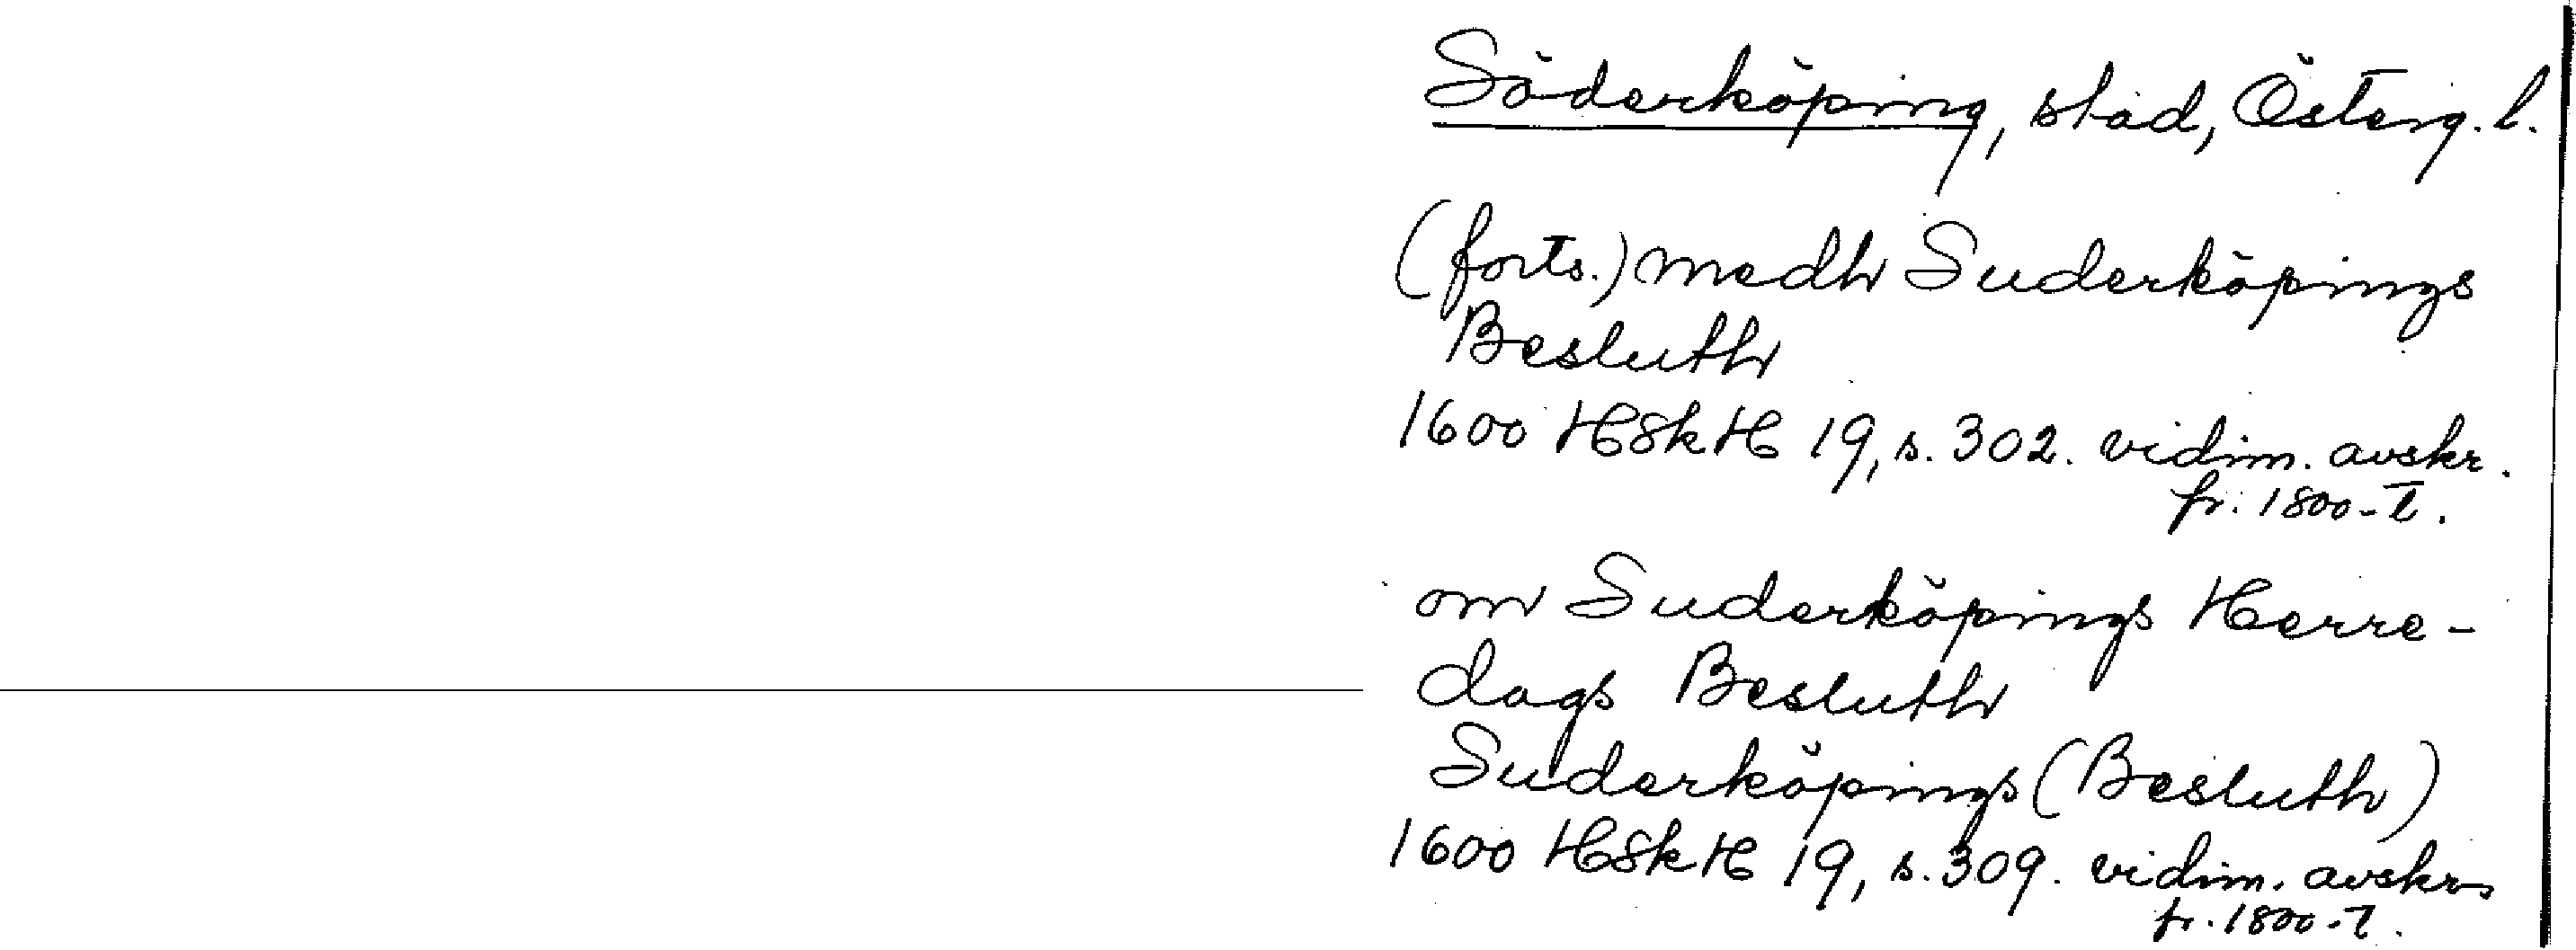 Söderköping, stad, Österg. l.
(forts.) medh Suderköpings
Besluth
1600 HSkH 19, s. 302. vidim. avskr.
fr. 1800-t.
om Suderköpings Herre-
dags Besluth
Suderköpings (Besluth)
1600 HSkH 19, s. 309. vidim. avskr.
fr. 1800-t.